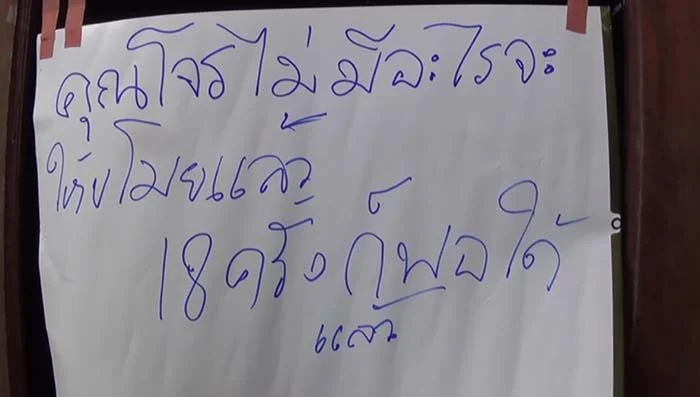 คุณโจรไม่มีอะไรจะ
ให้ขโมยแล้ว
18ครั้งก็พอได้
แล้ว